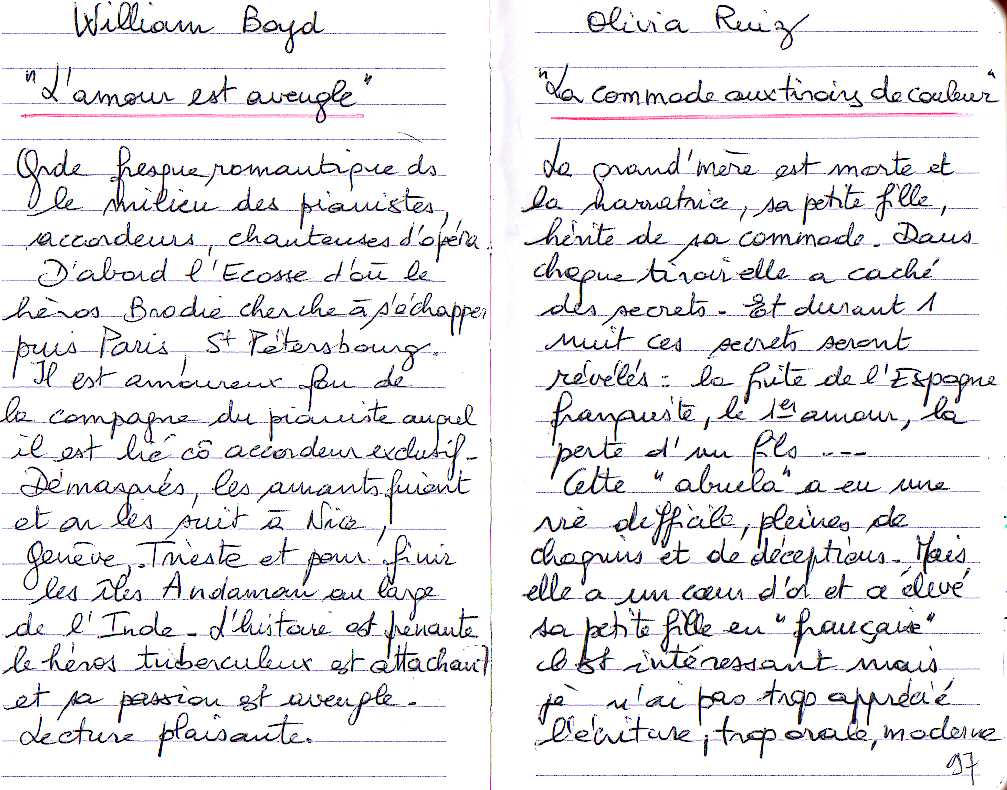 William Boyd
"L'amour est aveugle"
Gde fresque romantique ds
le milieu des pianistes,
accordeurs, chanteuses d'opéra.
D'abord l'Ecosse d'où le
héros Brodie cherche à s'échapper
puis Paris, St Pétersbourg.
Il est amoureux fou de
la compagne du pianiste auquel
il est lié cô accordeur exclusif.
Démasqués, les amants fuient
et on les suit à Nice,
Genève, Trieste et pour finir
les îles Andaman au large
de l'Inde. L'histoire est prenante
le héros tuberculeux est attachant
et sa passion est aveugle.
Lecture plaisante.
Olivia Ruiz
"La commode aux tiroirs de couleur"
La grand'mère est morte et
la narratrice, sa petite fille,
hérite de sa commode. Dans
chaque tiroir elle a caché
des secrets. Et durant 1
nuit ces secrets seront
révélés : la fuite de l'Espagne
franquiste, le 1er amour, la
perte d'un fils ---
Cette "abuela" a eu une
vie difficile, pleines de
chagrins et de déceptions. Mais
elle a un cœur d'or et a élevé
sa petite fille en "française"
C'est intéressant mais
je n'ai pas trop apprécié
l'écriture, trop orale, moderne
97